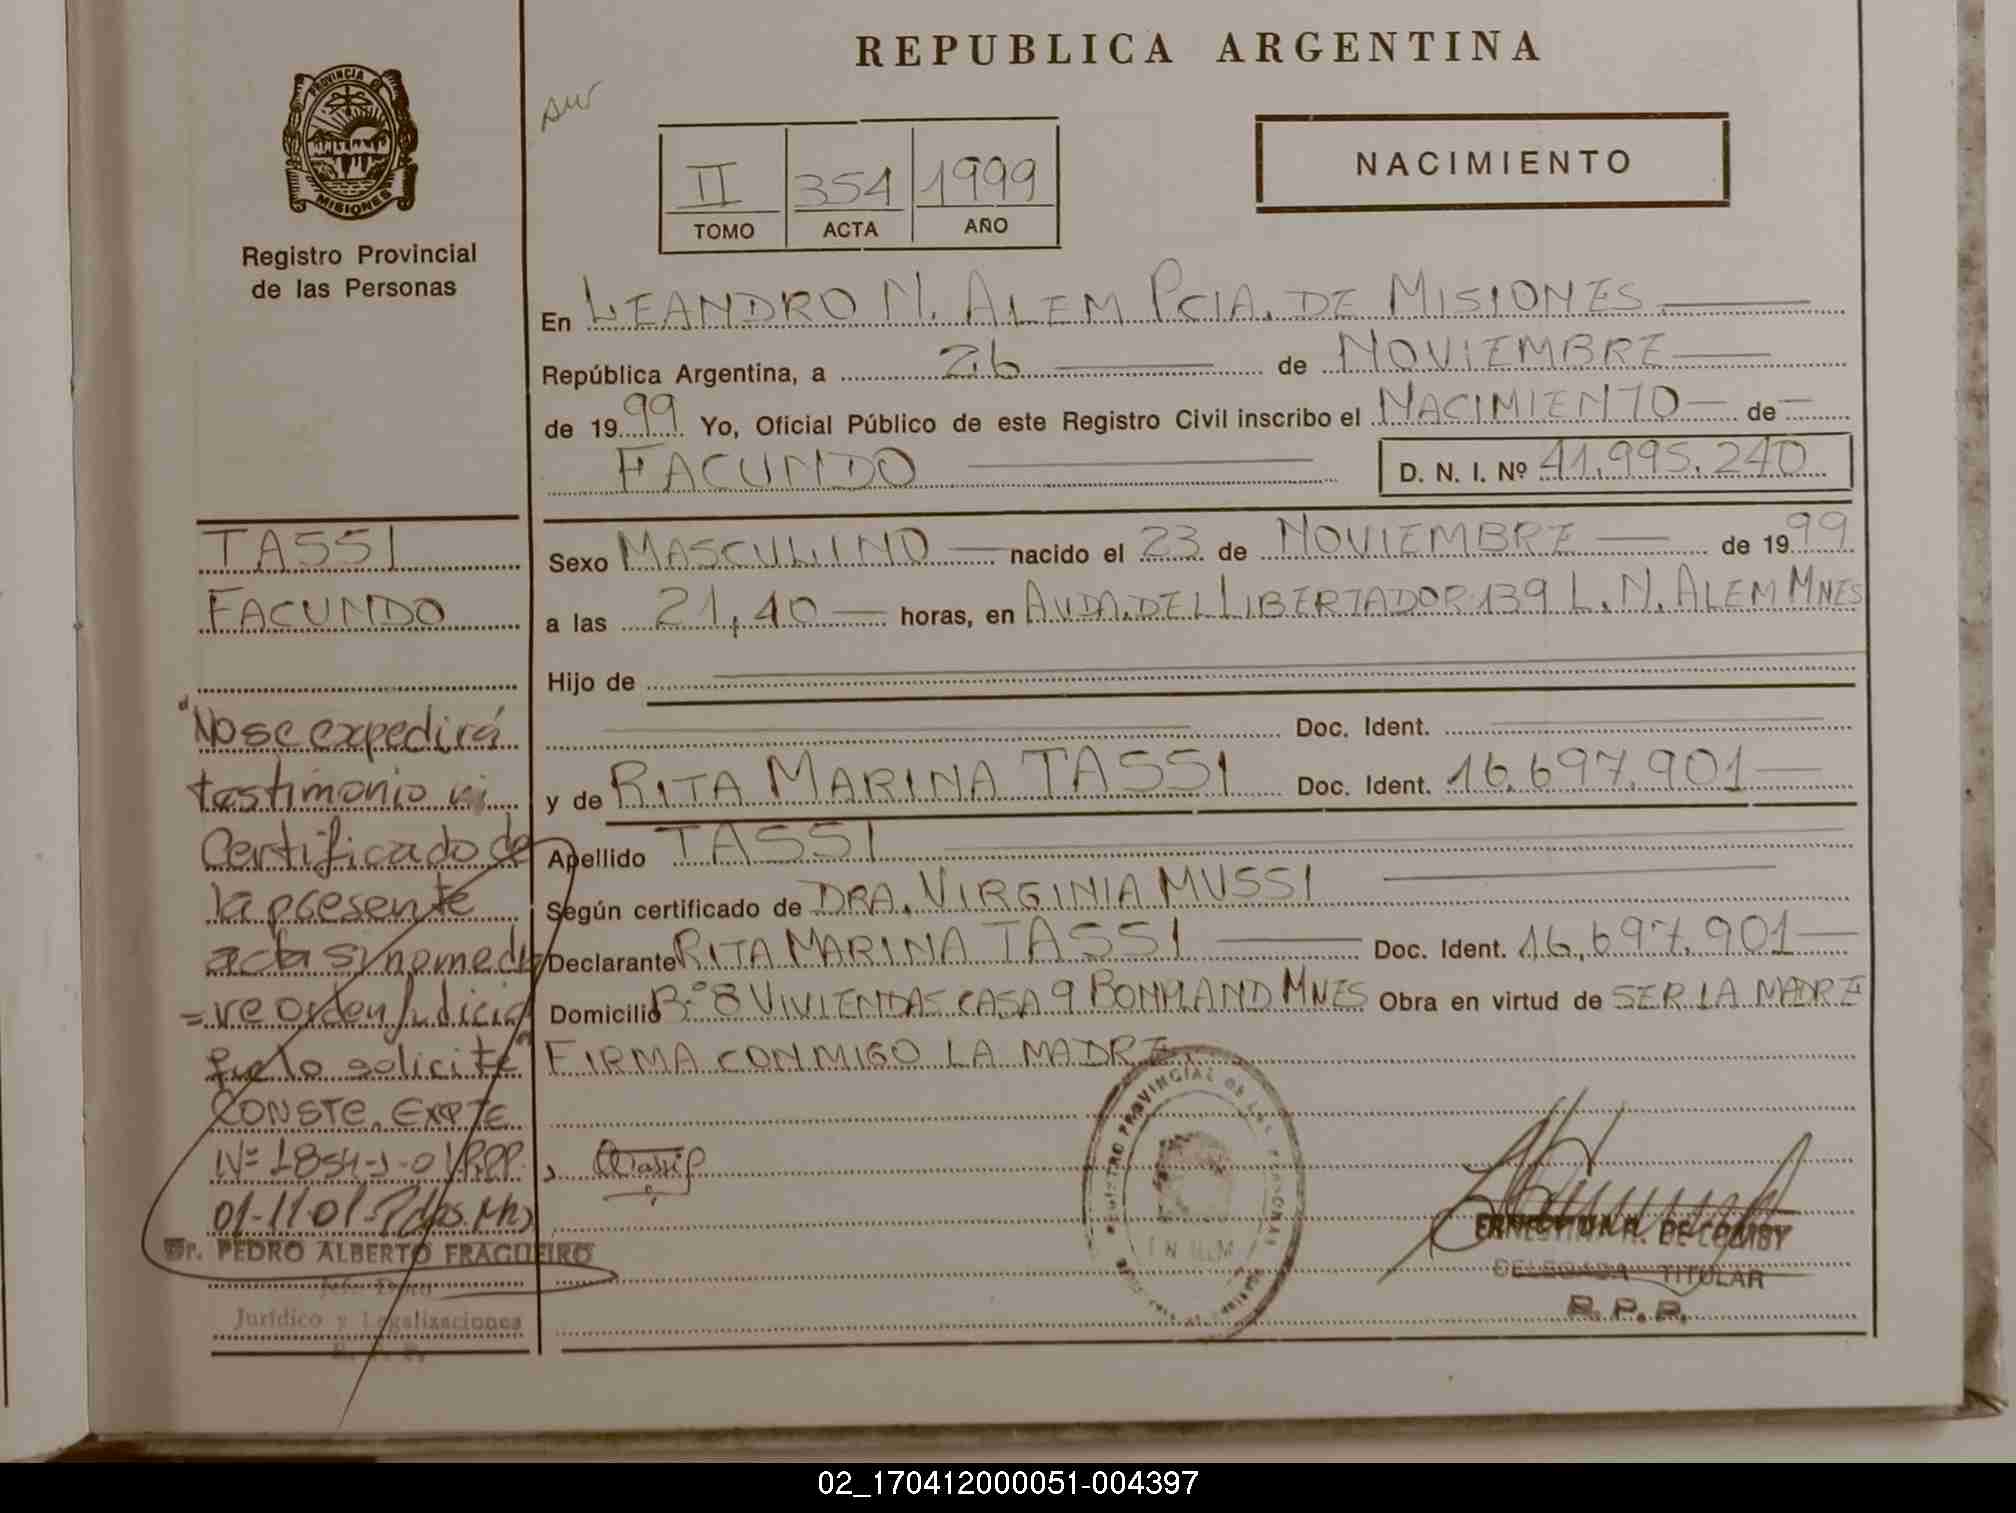 REPUBLICA ARGENTINA
PROVINCIA DE
MISIONES
Registro Provincial
de las Personas
II 354 1999
TOMO ACTA AÑO
NACIMIENTO
En LEANDRO N. ALEM PCIA. DE MISIONES
República Argentina, a 26 de NOVIEMBRE
de 1999 Yo, Oficial Público de este Registro Civil inscribo el NACIMIENTO de
FACUNDO D. N. I. Nº 41.995.240
TASSI
FACUNDO
"No se expedirá
testimonio ni
Certificado de
la presente
acta si no medi
=re orden Judicial
que lo solicite"
CONSTE. EXPTE
Nº 1854-J-01 R.P.P.
01-11-01-Pdas. Mnes
Dr. PEDRO ALBERTO FRAGUEIRO
Jurídico y Legalizaciones
R. P. P.
Sexo MASCULINO nacido el 23 de NOVIEMBRE de 1999
a las 21,40 horas, en AVDA. DEL LIBERTADOR 139 L. N. ALEM MNES
Hijo de
Doc. Ident.
y de RITA MARINA TASSI Doc. Ident. 16.697.901
Apellido TASSI
Según certificado de DRA. VIRGINIA MUSSI
Declarante RITA MARINA TASSI Doc. Ident. 16.697.901
Domicilio Bº 8 VIVIENDAS CASA 9 BONPLAND MNES Obra en virtud de SER LA MADRE
FIRMA CONMIGO LA MADRE.
REGISTRO PROVINCIAL DE LAS PERSONAS
DELEGADA TITULAR
R. P. P.
02_170412000051-004397